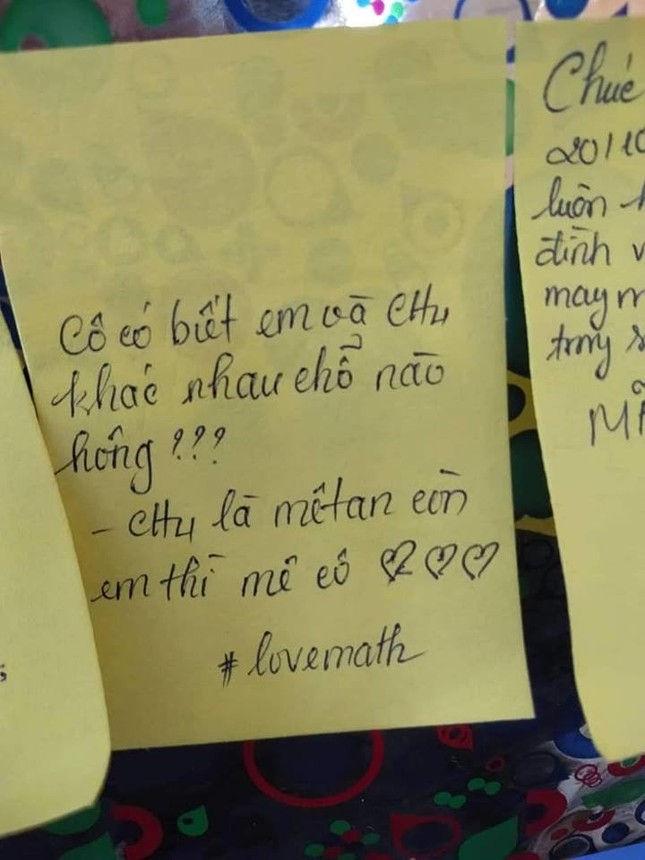 Cô có biết em và CH4
khác nhau chỗ nào
hông???
- CH4 là mêtan còn
em thì mê cô ♡♡♡
#lovemath
Chúc
20/10
luôn
đình v
may m
trong s